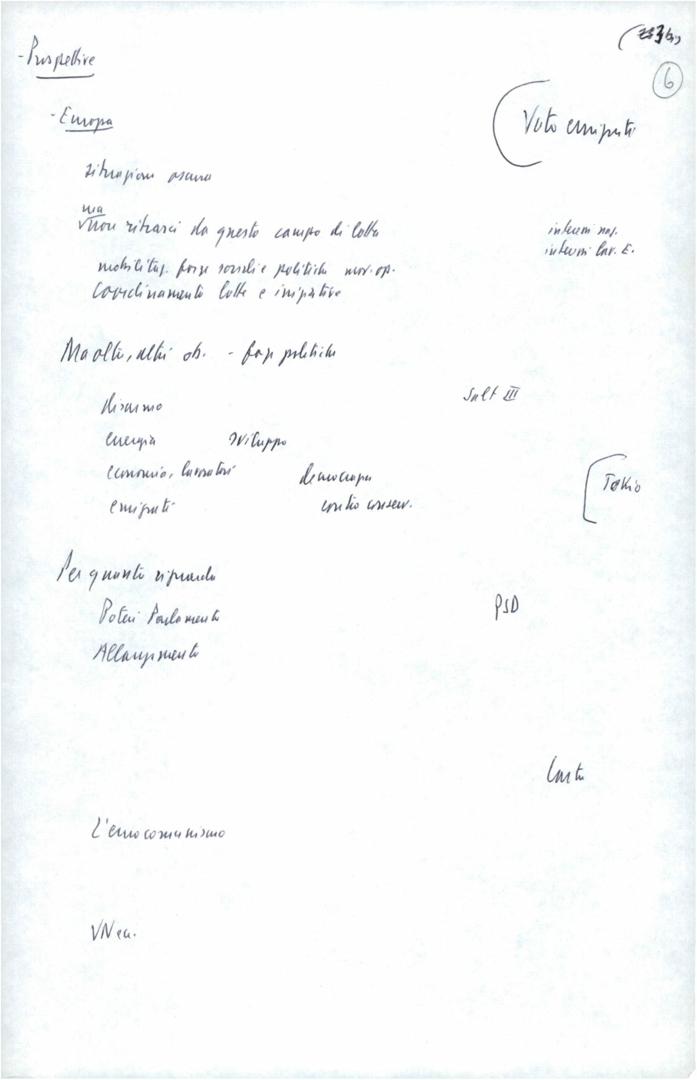 - Prospettive
6
- Europa
Voto emigrati
situazione oscura
ma
non ritrarci da questo campo di lotta
interessi naz.
interessi lav. E.
mobilitaz. forze sociali e politiche mov. op.
Coordinamento lotte e iniziative
Ma oltre, altri ob. - forze politiche
disarmo
Salt III
energia sviluppo
economia, lavoratori democrazia
emigrati contro conserv.
Tokio
Per quanto riguarda
Poteri Parlamento
PSD
Allargamento
L'eurocomunismo
VN ecc.